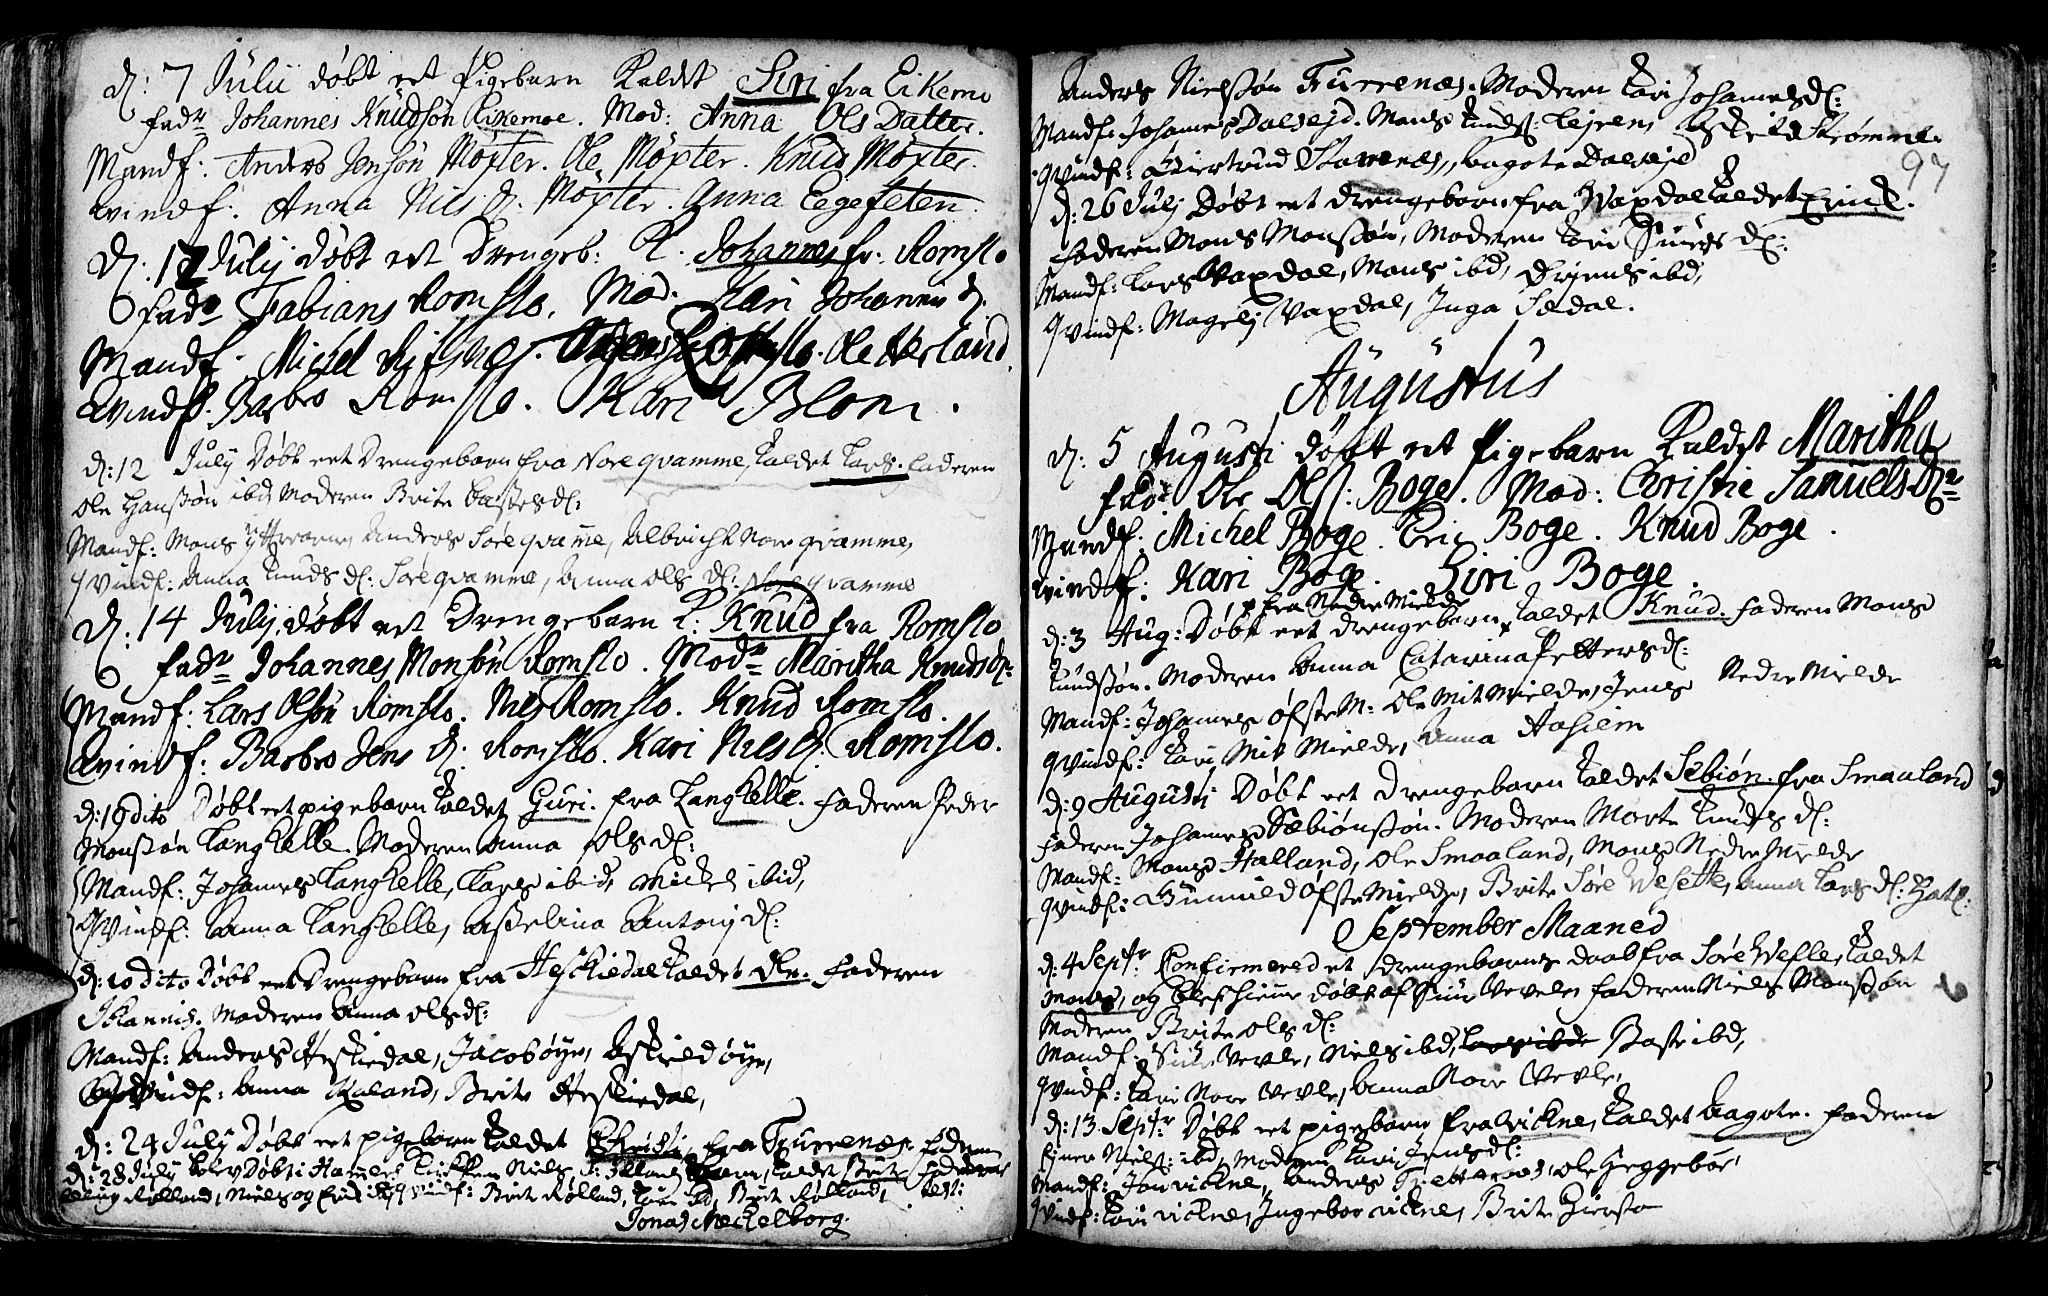 d: 7 Julii døbt eet Pigebarn Kaldet Siri fra Eikemo
fadr Johannes Knudsøn Eikemoe. Mod: Anna Ols Datter.
Mandf: Anders Jensøn Møxter. Ole Møxter. Knud Møxter.
Qvindf: Anna Nils d. Møxter. Anna Eegefeten.
d. 12 July døbt eet Drengeb: K. Johannes fr. Romslo
fadr Fabians Romslo. Mod. Kari Johannis d.
Mandf. Michel Romslo. Ole Herland.
Qvindf: Barbro Romslo. Kari Blom.
d: 12 July Døbt eet Drengebarn fra Noreqvamme, Kaldet Lars. faderen
Ole Hanssøn ibd Moderen Brite Bastes d:
Mandf: Mons Anders Søreqvame, Albricht Noreqvamme,
qvindf: Anna Knuds d: Søreqvamme, Anna Ols d: Noreqvamme
d. 14 July døbt eet Drengebarn K: Knud fra Romslo
fadr Johannes Monsøn Romslo. Modr Maritha Knudsdr:
Mandf: Lars Olsøn Romslo. Nils Romslo. Knud Romslo.
Qvindf: Barbro Jens d: Romslo. Kari Nils d: Romslo.
d: 19 dito Døbt eet pigebarn Kaldet Guri. fra Langhelle. faderen Peder
Monssøn Langhelle. Moderen Anna Ols d:
Mandf: Johannes Langhelle, Lars ibid, Michel ibid,
qvindf: Anna Langhelle, Asselina Antonj d:
d: 20 Dito Døbt eet Drengebarn fra Heskiedal Kaldet Ole. faderen
Johannis. Moderen Anna Ols d:
Mandf: Anders Heskiedal, Jacob Øye, Askield Øye,
qvindf: Anna Kaland, Brite Heskiedal,
d: 24 July Døbt eet pigebarn Kaldet Christi fra Furrenæs. faderen
d: 28 July blev Døbt i Hammers Kirken Niels barn, Kaldet Brite
Rølland, Niels og Erik qvindf: Brite Rølland, Kari ibd, Brite Rølland, test:
Jonas Meckelborg.
Anders Nielssøn Furrenæs. Moderen Kari Johannes d:
Mandf: Johannes Dalseid. Mons Knuds: Leiren, Askild Strømme.
qvindf: Giertrud Starrenæs, Aagote Dalseid
97
d: 26 July Døbt eet Drengebarn fra Vaxdal Kaldet Erick.
faderen Mons Monssøn, Moderen Kari Siurs d:
Mandf: Lars Vaxdal, Mons ibd, Ørjens ibd,
qvindf: Magelj Vaxdal, Inga Sædal.
Augustus
d: 5 Augusti døbt eet Pigebarn Kaldet Maritha
fadr Ole Ols: Boge. Mod: Christie Samuels dr
Mandf: Michel Boge. Eric Boge. Knud Boge.
Qvindf: Kari Boge. Siri Boge.
fra Nedre Mielde
d: 3 Aug: Døbt eet Drengebarn Kaldet Knud. faderen Mons
Knudssøn. Moderen Anna Catarina Petters d:
Mandf: Johannes Øfste M: Ole Mit Mielde, Jens Nedre Mielde
qvindf: Kari Mit Mielde, Anna Aasiem
d: 9 Augusti Døbt eet Drengebarn Kaldet Sebiøn. fra Smaaland
faderen Johannes Sæbiønssøn. Moderen Marte Knuds d:
Mandf: Mons Halland, Ole Smaaland, Mons Nedre Mielde
qvindf: Gunnild Øfste Mielde, Brite Søre Vesette, Anna Lars d: Hatl:
September Maaned
d: 4 Septr Confirmered et Drengebarns daab fra Søre Vefle, Kaldet
Mons, og blef hieme døbt af Siur Vevle. faderen Niels Monssøn
Moderen Brite Ols d:
Mandf: Siur Vevle, Niels ibd, Baste ibd,
qvindf: Kari Nore Vevle, Anna Nore Vevle,
d: 13 Septr Døbt eet pigebarn fra Vickne, Kaldet Aagote. faderen
Einer Niels: ibd, Moderen Kari Jens d:
Mandf: Jon Vickne, Anders Ole Heggebøe,
qvindf: Kari Vickne, Ingebor Vickne, Brite Hiersta